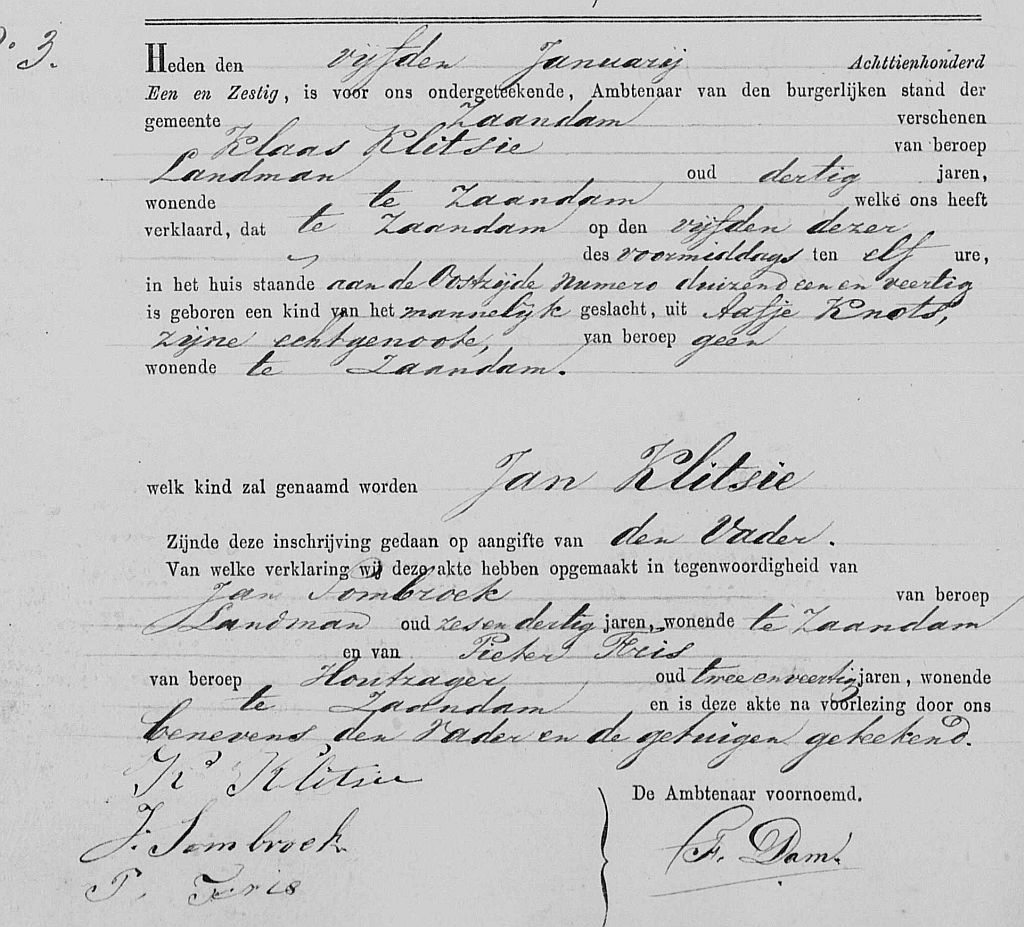 No. 3.
Heden den vijfden Januarij Achttienhonderd
Een en Zestig, is voor ons ondergeteekende, Ambtenaar van den burgerlijken stand der
gemeente Zaandam verschenen
Klaas Klitsie van beroep
Landman oud dertig jaren,
wonende te Zaandam welke ons heeft
verklaard, dat te Zaandam op den vijfden dezer
des voormiddags ten elf ure,
in het huis staande aan de Oostzijde Numero duizend een en veertig
is geboren een kind van het mannelijk geslacht, uit Aafje Knots,
zijne echtgenoote, van beroep geen
wonende te Zaandam.
welk kind zal genaamd worden Jan Klitsie
Zijnde deze inschrijving gedaan op aangifte van den Vader.
Van welke verklaring wij deze akte hebben opgemaakt in tegenwoordigheid van
Jan Sombroek van beroep
Landman oud zes en dertig jaren, wonende te Zaandam
en van Pieter Fris
van beroep Houtzager oud twee en veertig jaren, wonende
te Zaandam en is deze akte na voorlezing door ons
benevens den Vader en de getuigen geteekend.
Ks Klitsie
J. Sombroek
P. Fris
De Ambtenaar voornoemd.
F. Dam.